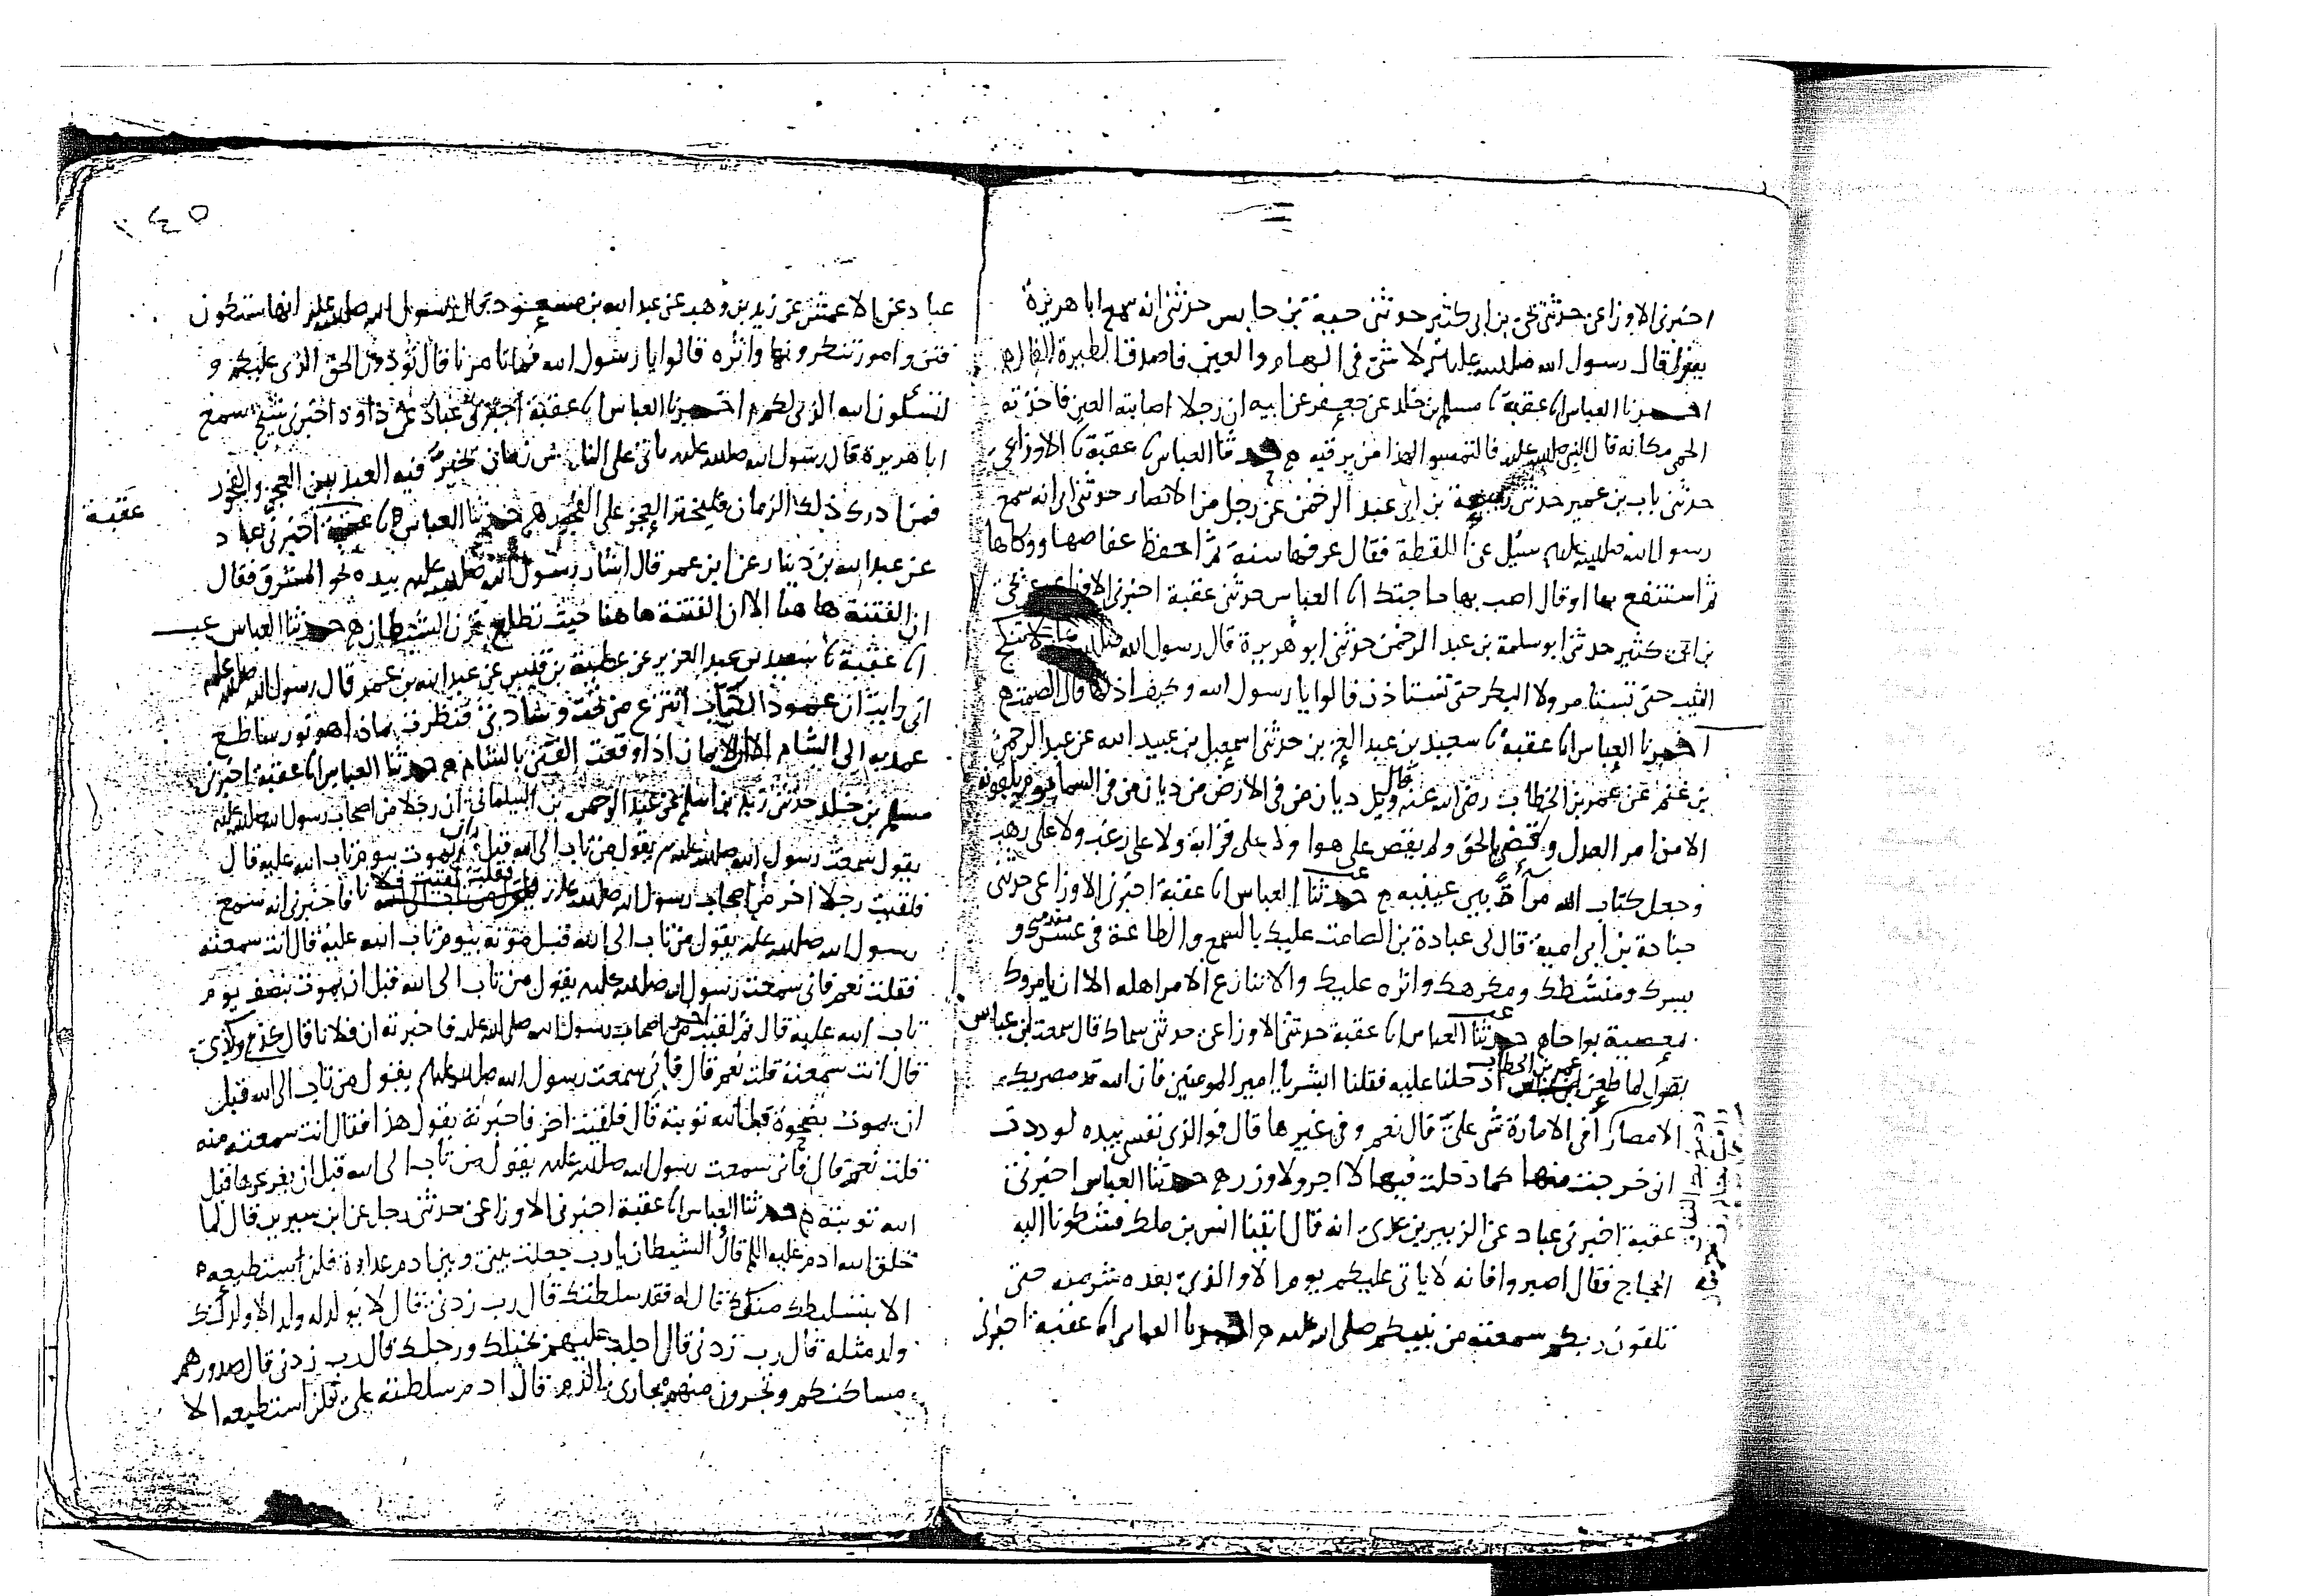 اخبرني الاوزاعي حدثني يحيى بن ابي كثير حدثني حية بن حابس حدثني انه سمع ابا هريرة
يقول قال رسول الله صلى الله عليه وسلم لا شي في الهام والعين فاصدق الطيرة الفال ه
اخبرنا العباس انا عقبة نا مسلم بن خلد عن جعفر عن ابيه ان رجلا اصابته العين فاخذته
الحمى مكانه قال النبي صلى الله عليه فالتمسوا لهذا من يرقيه ه حدثنا العباس نا عقبة نا الاوزاعي
حدثني باب بن عمير حدثني ربيعة بن ابي عبد الرحمن عن رجل من الانصار حدثني ابي انه سمع
رسول الله صلى الله عليه سئل عن اللقطة فقال عرفها سنة ثم احفظ عفاصها ووكاها
ثم استنفع بها او قال اصب بها حاجتك انا العباس حدثني عقبة اخبرني الاوزاعي عن يحيى
بن ابي كثير حدثني ابو سلمة بن عبد الرحمن حدثني ابو هريرة قال رسول الله صلى الله لا تنكح
الثيب حتى تستامر ولا البكر حتى تستاذن قالوا يا رسول الله وكيف اذنها قال الصمت ه
اخبرنا العباس انا عقبة نا سعيد بن عبد العزيز بن حدثني اسمعيل بن عبيد الله عن عبد الرحمن
بن غنم عن عمر بن الخطاب رضي الله عنه قال ويل ديان من في الارض من ديان من في السما يوم يلقونه
الا من امر العدل وقضى بالحق ولم يقض على هوا ولا على قرابة ولا على رغب ولا على رهب
وجعل كتاب الله مرآة بين عينيه ه حدثنا العباس انا عقبة اخبرني الاوزاعي حدثني
جنادة بن ابي امية قال لي عبادة بن الصامت عليك بالسمع والطاعة في عسرك و
يسرك ومنشطك ومكرهك واثره عليك والا تنازع الامر اهله الا ان يامروك
بمعصية بواحا ه حدثنا العباس انا عقبة حدثني الاوزاعي حدثني سماك قال سمعت ابن عباس
يقول لما طعن عمر بن الخطاب ادخلنا عليه فقلنا ابشر يا امير المومنين فان الله قد مصر بك
الامصار أفي الامارة تثني عليّ قال نعم وفي غيرها قال فوالذي نفسي بيده لوددت
اني خرجت منها كما دخلت فيها لا اجر ولا وزر ه حدثنا العباس اخبرني
عقبة اخبرني عباد عن الزبير بن عدي انه قال اتينا انس بن ملك فشكونا اليه
الحجاج فقال اصبروا فانه لا ياتي عليكم يوم الا والذي بعده شر منه حتى
تلقون ربكم سمعته من نبيكم صلى الله عليه ه اخبرنا العباس انا عقبة اخبرني
١٤٥
عباد عن الاعمش عن زيد بن وهب عن عبد الله بن مسعود قال رسول الله صلى الله عليه انها ستكون
فتن وامور تنكرونها واثره قالوا يا رسول الله فما تامرنا قال تؤدون الحق الذي عليكم و
تسئلون الله الذي لكم اخبرنا العباس انا عقبة اخبرني عباد عن داود اخبرني شيخ سمع
ابا هريرة قال رسول الله صلى الله عليه ياتي على الناس زمان يخير فيه العبد بين العجز والفجور
فمن ادرك ذلك الزمان فليختر العجز على الفجور ه حدثنا العباس انا عقبة اخبرني عباد
عقبة
عن عبد الله بن دينار عن ابن عمر قال اشار رسول الله صلى الله عليه بيده نحو المشرق فقال
ان الفتنة ها هنا الا ان الفتنة ها هنا حيث تطلع قرن الشيطان ه حدثنا العباس
انا عقبة نا سعيد بن عبد العزيز عن عطية بن قيس عن عبد الله بن عمرو قال رسول الله صلى الله عليه
اني رايت ان عمود الكتاب انتزع من تحت وسادتي فنظرت فاذا هو نور ساطع
عمد به الى الشام الا ان الايمان اذا وقعت الفتن بالشام ه حدثنا العباس انا عقبة اخبرني
مسلم بن خلد حدثني زيد بن اسلم عن عبد الرحمن بن البيلماني ان رجلا من اصحاب رسول الله صلى الله عليه
يقول سمعت رسول الله صلى الله عليه وسلم يقول من تاب الى الله قبل ان يموت بيوم تاب الله عليه قال
فلقيت رجلا اخر من اصحاب رسول الله صلى الله عليه فقلت لقيت فلانا فاخبرني انه سمع
رسول الله صلى الله عليه يقول من تاب الى الله قبل موته بيوم تاب الله عليه قال انت سمعته
فقلت نعم فاني سمعت رسول الله صلى الله عليه يقول من تاب الى الله قبل ان يموت بنصف يوم
تاب الله عليه قال ثم لقيت اخر من اصحاب رسول الله صلى الله عليه فاخبرته ان فلانا قال كذا وكذا
قال انت سمعته قلت نعم قال فاني سمعت رسول الله صلى الله عليه يقول من تاب الى الله قبل
ان يموت بضحوة قبل الله توبته قال فلقيت اخر فاخبرته يقول هذا فقال انت سمعته منه
قلت نعم قال فاني سمعت رسول الله صلى الله عليه يقول من تاب الى الله قبل ان يغرغر قبل
الله توبته ه حدثنا العباس انا عقبة اخبرني الاوزاعي حدثني رجل عن ابن سيرين قال لما
خلق الله ادم عليه السلم قال الشيطان يا رب جعلت بيني وبين ادم عداوة فلن استطيعه
الا بتسليطك منك قال له فقد سلطتك قال رب زدني قال لا يولد له ولد الا ولد لك
ولد مثله قال رب زدني قال اجلب عليهم بخيلك ورجلك قال رب زدني قال صدورهم
مساكنكم وتجرون منهم مجاري الدم قال ادم سلطته علي فلن استطيعه الا